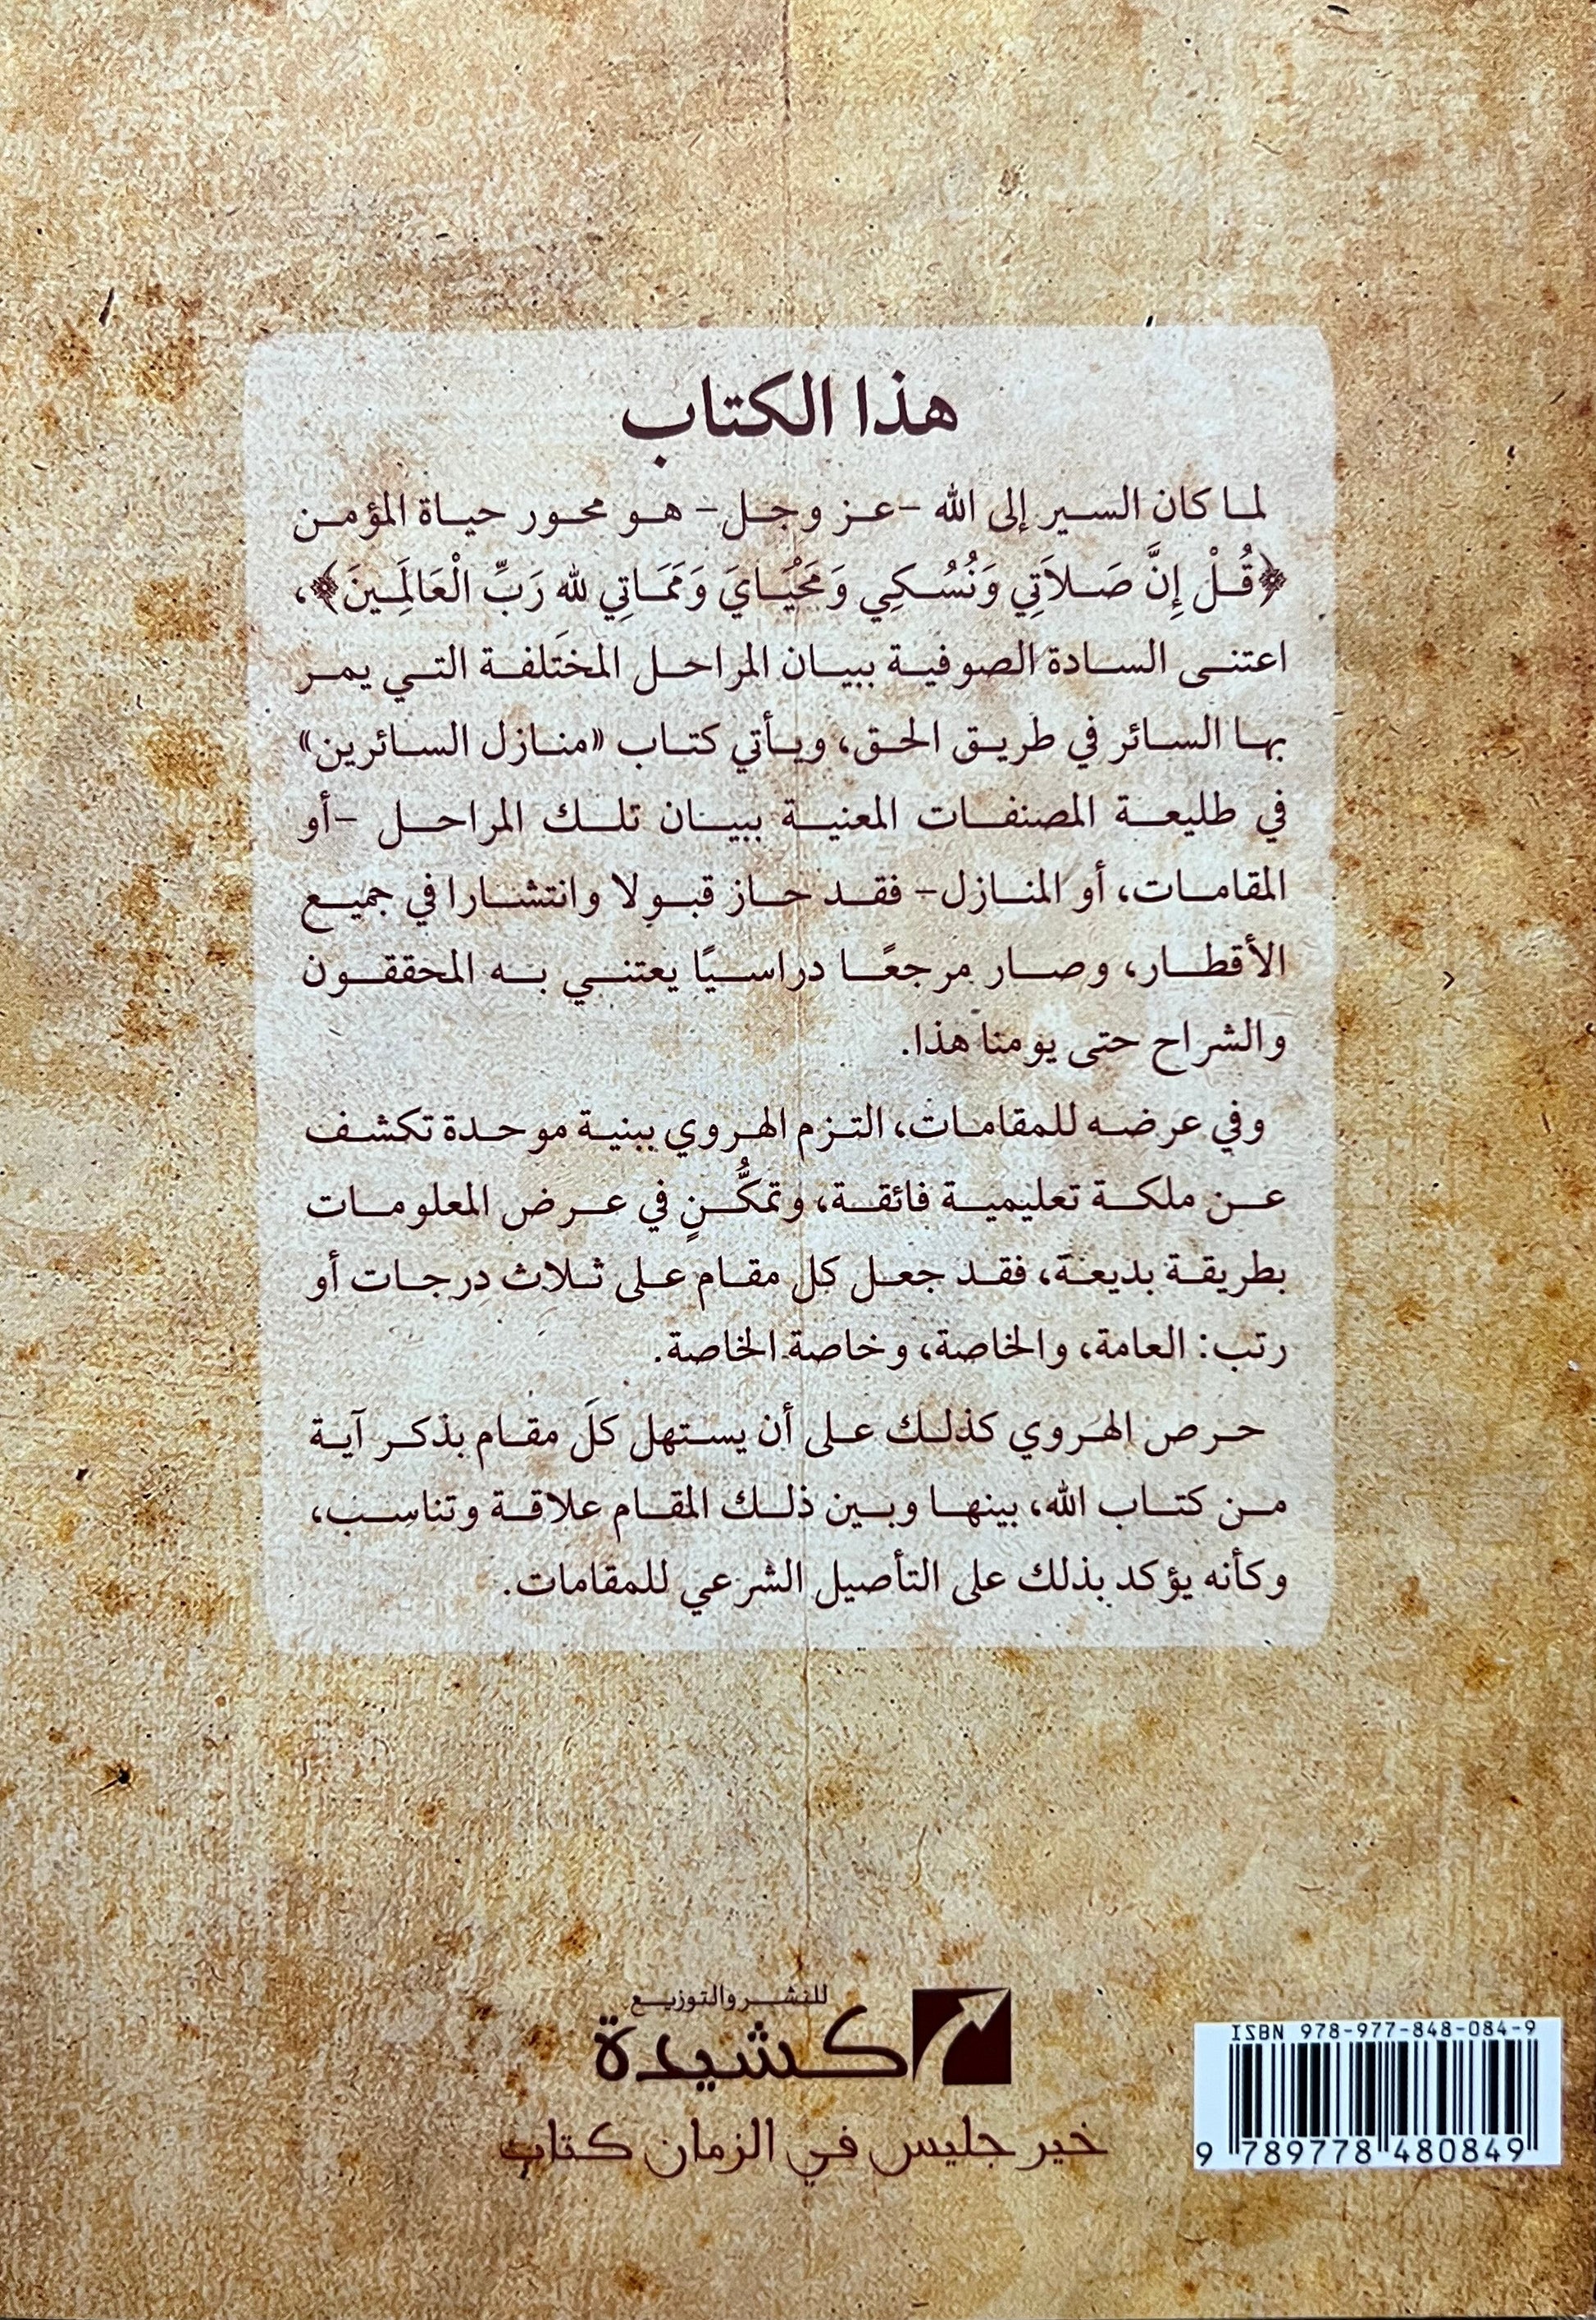 هذا الكتاب
لما كان السير إلى الله -عز وجل- هو محور حياة المؤمن
﴿قُلْ إِنَّ صَلاَتِي وَنُسُكِي وَمَحْيَايَ وَمَمَاتِي لله رَبِّ الْعَالَمِينَ﴾،
اعتنى السادة الصوفية ببيان المراحل المختلفة التي يمر
بها السائر في طريق الحق، ويأتي كتاب «منازل السائرين»
في طليعة المصنفات المعنية ببيان تلك المراحل -أو
المقامات، أو المنازل- فقد حاز قبولا وانتشارا في جميع
الأقطار، وصار مرجعًا دراسيًا يعتني به المحققون
والشراح حتى يومنا هذا.
وفي عرضه للمقامات، التزم الهروي ببنية موحدة تكشف
عن ملكة تعليمية فائقة، وتمكُّنٍ في عرض المعلومات
بطريقة بديعة، فقد جعل كل مقام على ثلاث درجات أو
رتب: العامة، والخاصة، وخاصة الخاصة.
حرص الهروي كذلك على أن يستهل كل مقام بذكر آية
من كتاب الله، بينها وبين ذلك المقام علاقة وتناسب،
وكأنه يؤكد بذلك على التأصيل الشرعي للمقامات.
للنشر والتوزيع
كشيدة
خير جليس في الزمان كتاب
ISBN 978-977-848-084-9
9 789778 480849